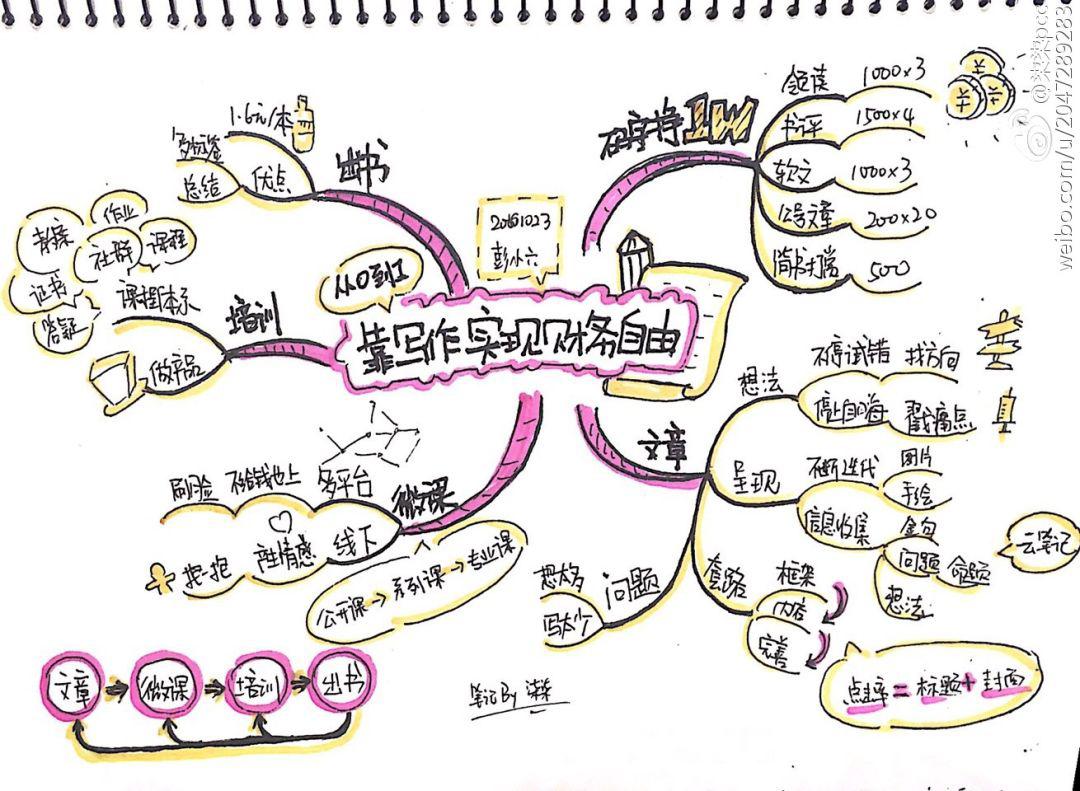 20161023
彭小六
从0到1
靠写作实现财务自由
在宇宙挣1W
领读 1000×3
书评 1500×4
软文 1000×3
公号文章 200×20
简书打赏 500
文章
想法
不停试错 找方向
停止自嗨 戳痛点
呈现
不断迭代
图片
手绘
信息收集
金句
问题 命题
想法
云笔记
套路
框架
内容
完善
问题
想太多
写太少
点击率=标题+封面
微课
多平台
不给钱也上
刷脸
线下
产生情感
抱一抱
公开课→系列课→专业课
培训
课程体系
作业
社群
课程
证书
答疑
做产品
出书
1.6元/本
优点
多标签
总结
文章→微课→培训→出书
笔记By
weibo.com/u/2047289283